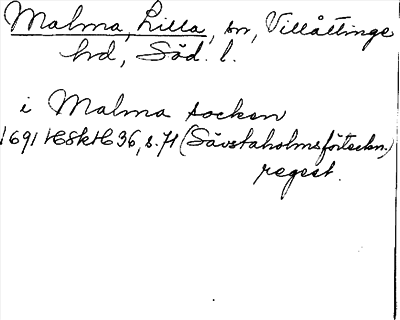 Malma, Lilla, sn, Villåttinge
hd, Söd. l.
i Malma socken
1691 HSkH 36, s. 71 (Sävstaholmsförteckn.)
regest.